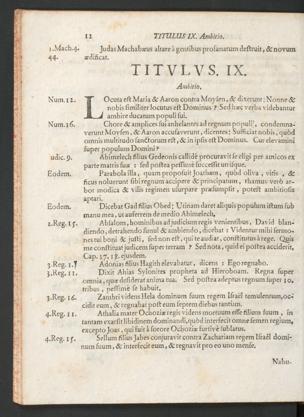 12 TITULUS IX. Ambitio.
1.Mach.4. Judas Machabæus altare à gentibus profanatum destruit, & novum
44. ædificat.
TITVLVS. IX.
Ambitio.
Num.12. LOcuta est Maria & Aaron contra Moysen, & dixerunt: Nonne &
nobis similiter locutus est Dominus? Sed hæc verba videbantur
ambire ducatum populi sui.
Num.16. Chore & amplices sui anhelantes ad regnum populi, condemna-
verunt Moysen, & Aaron accusaverunt, dicentes: Sufficiat nobis, quòd
omnis multitudo sanctorum est, & in ipsis est Dominus. Cur elevamini
super populum Domini?
udic. 9. Abimelech filius Gedeonis callidè procuravit se eligi per amicos ex
parte matris suæ: sed postea pessimè successit utrisque.
Eodem. Parabola illa, quam proposuit Joatham, quòd oliva, vitis, &
ficus noluerunt sibi regnum accipere & principatum, rhamnus verò ar-
bor modica & vilis regimen usurpare præsumpsit, potest ambitiosis
aptari.
Eodem. Dicebat Gaal filius Obed; Utinam daret aliquis populum istum sub
manu mea, ut auferrem de medio Abimelech,
2.Reg.15. Absalom, hominibus ad judicium regis venientibus, David blan-
diendo, detrahendo simul & ambiendo, dicebat: Videntur mihi sermo-
nes tui boni & justi, sed non est, qui te audiat, constitutus à rege. Quis
me constituat judicem super terram? Sed nota, quid ei postea acciderit,
Cap. 17. 18. ejusdem.
3.Reg.1. Adonias filius Hagith elevabatur, dicens: Ego regnabo.
3.Reg.11. Dixit Ahias Sylonites propheta ad Hieroboam. Regna super
omnia, quæ desiderat anima tua. Sed postea adeptus regnum super 10.
tribus, pessimè se habuit.
3.Reg.16. Zambri videns Hela dominum suum regem Israël temulentum, oc-
cidit eum, & regnabat post eum septem diebus tantùm.
4.Reg.11. Athalia mater Ochoziæ regis videns mortuum esse filium suum, in
tantam exarsit libidinem dominandi, quòd interfecit omne semen regium,
excepto Joas, qui fuit à sorore Ochoziæ furtivè sublatus.
4.Reg.15. Sellum filius Jabes conjuravit contra Zachariam regem Israël domi-
num suum, & interfecit eum, & regnavit pro eo uno mense.
Nabu-